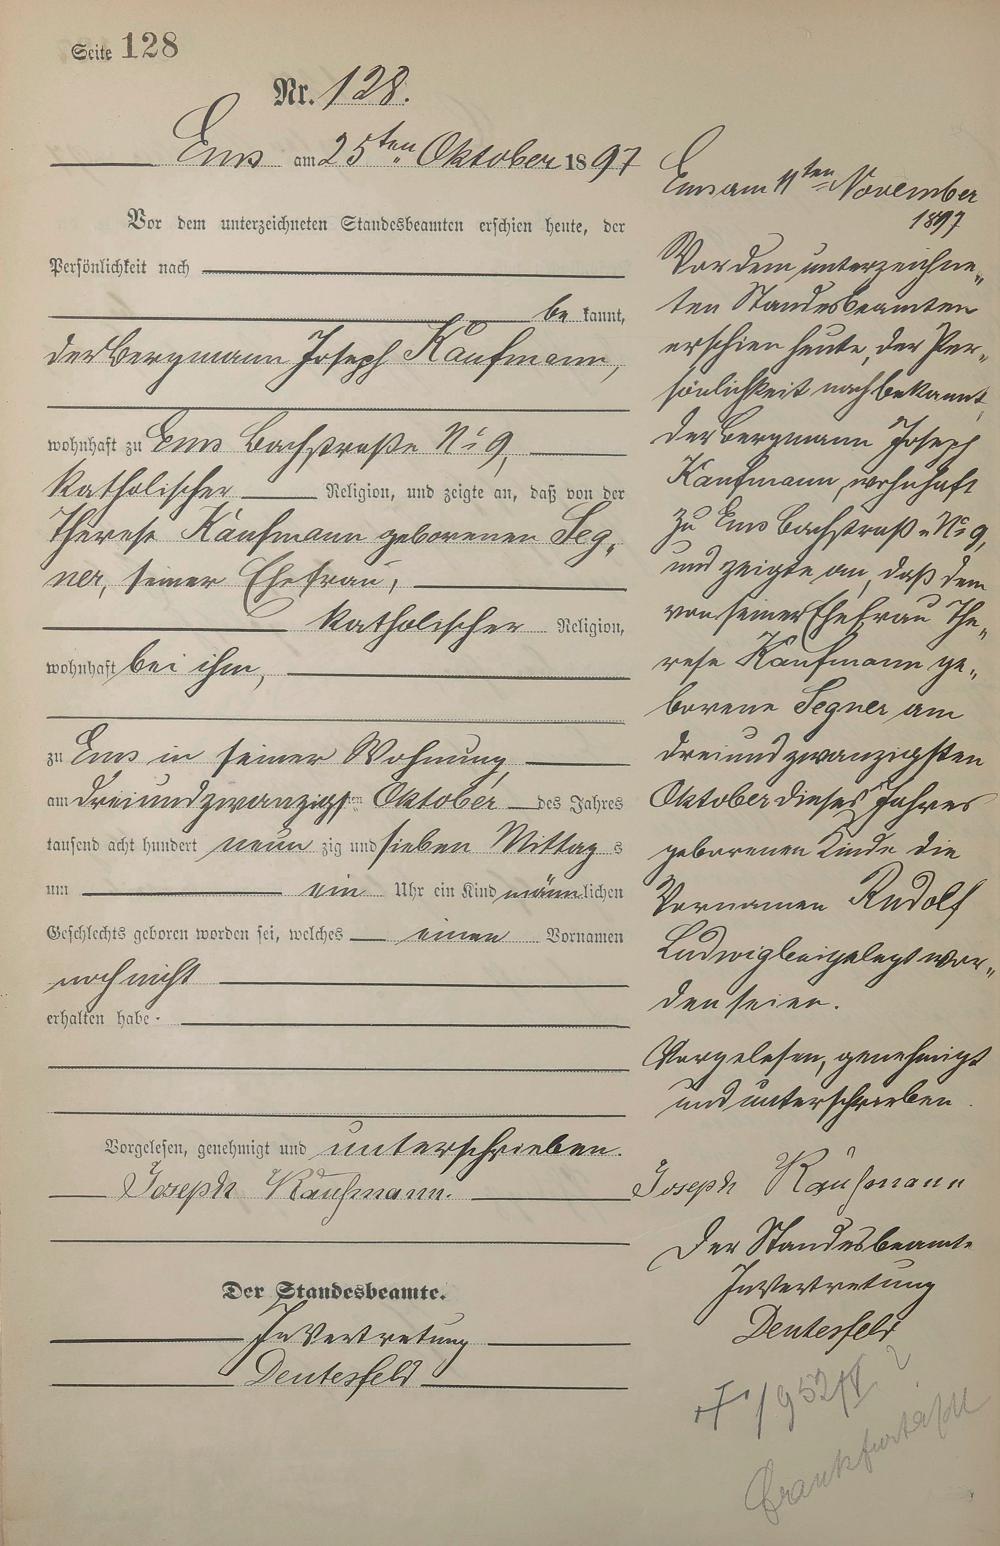 Seite 128
Nr. 128.
Ems am 25ten Oktober 1897
Vor dem unterzeichneten Standesbeamten erschien heute, der
Persönlichkeit nach
be kannt,
der Bergmann Joseph Kaufmann,
wohnhaft zu Ems Bachstraße No 9,
katholischer Religion, und zeigte an, daß von der
Therese Kaufmann geborenen Seg„
ner, seiner Ehefrau,
katholischer Religion,
wohnhaft bei ihm,
zu Ems in seiner Wohnung
am dreiundzwanzigsten Oktober des Jahres
tausend acht hundert neun zig und sieben Mittag s
um ein Uhr ein Kind männlichen
Geschlechts geboren worden sei, welches einen Vornamen
noch nicht
erhalten habe.
Vorgelesen, genehmigt und unterschrieben.
Joseph Kaufmann.
Der Standesbeamte.
In Vertretung
Deutesfeld
Ems am 11ten November
1897
Vor dem unterzeichne„
ten Standesbeamten
erschien heute, der Per„
sönlichkeit nach bekannt,
der Bergmann Joseph
Kaufmann, wohnhaft
zu Ems Bachstraße No 9,
und zeigte an, daß dem
von seiner Ehefrau The„
rese Kaufmann ge„
borene Segner am
dreiundzwanzigsten
Oktober dieses Jahres
geborenen Kinde die
Vornamen Rudolf
Ludwig beigelegt wor„
den seien.
Vorgelesen, genehmigt
und unterschrieben.
Joseph Kaufmann
Der Standesbeamte
In Vertretung
Deutesfeld
1952
Frankfurt a/M